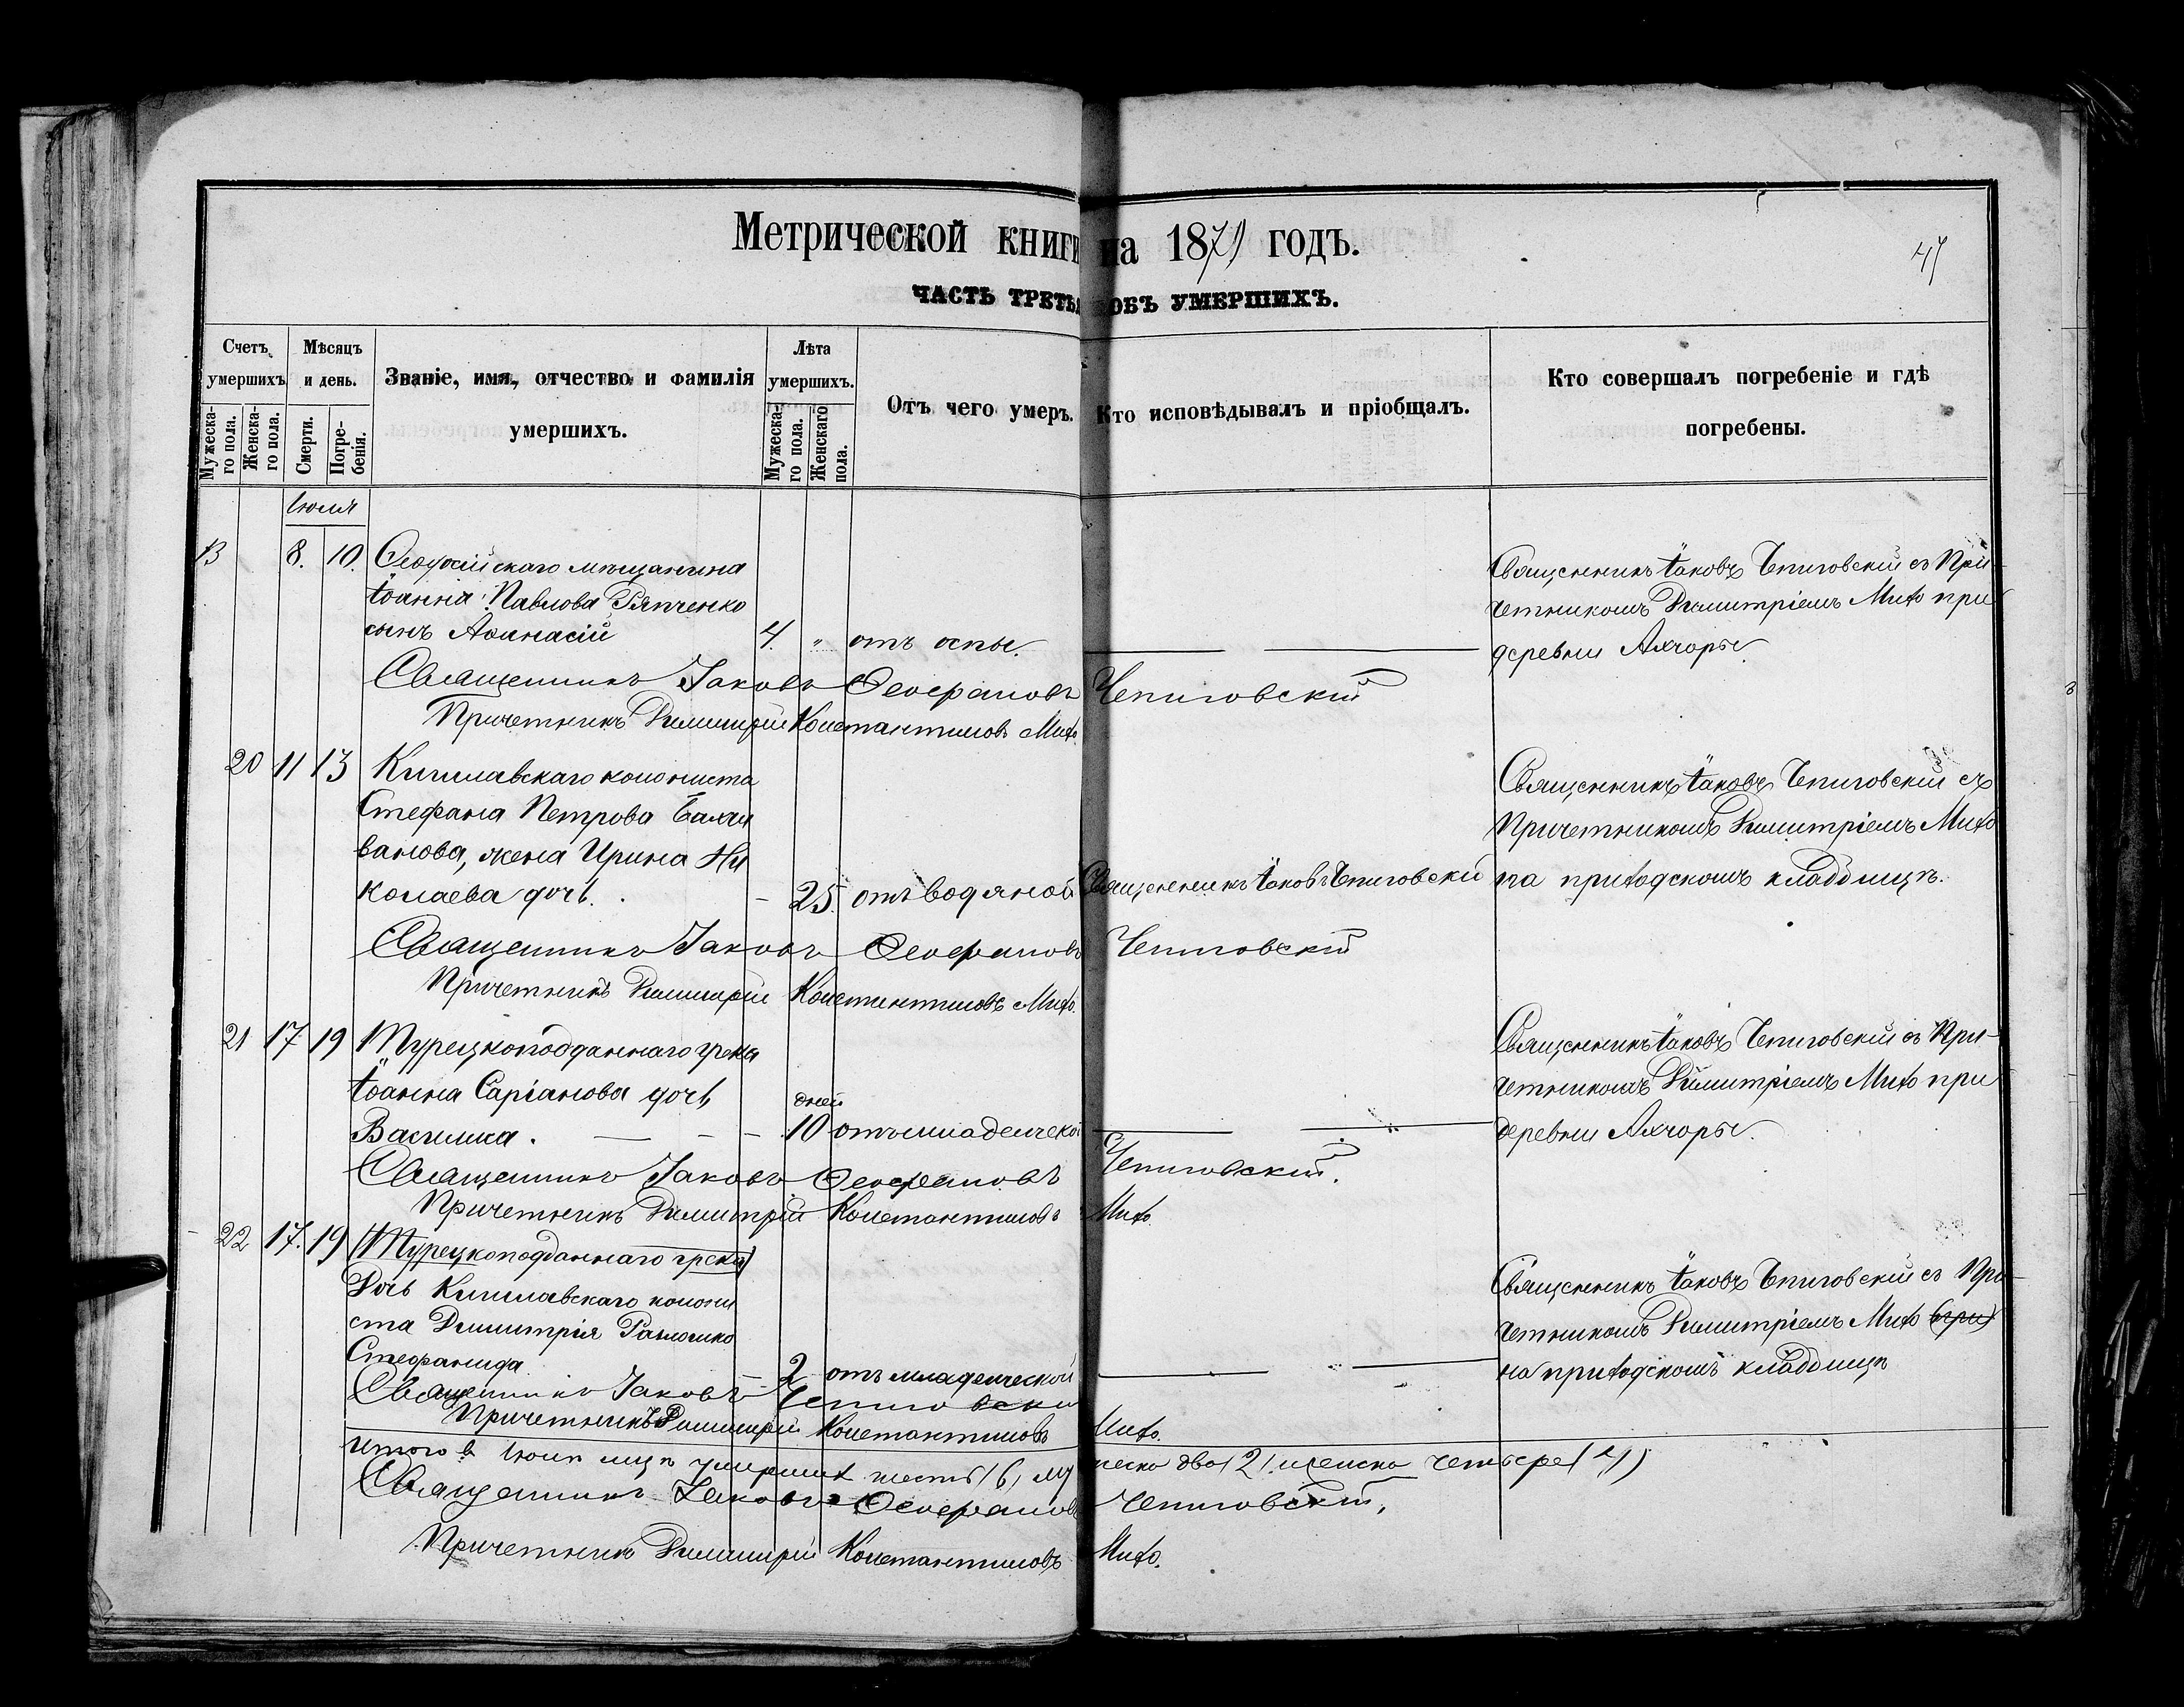 Метрической книги на 1871 годъ.
47
ЧАСТЬ ТРЕТЬЯ ОБЪ УМЕРШИХЪ.
Счетъ умершихъ
Мужеска-го пола.
Женска-го пола.
Мѣсяцъ и день.
Смерти.
Погре-бенія.
Званіе, имя, отчество и фамилія умершихъ.
Лѣта умершихъ.
Мужеска-го пола.
Женскаго пола.
Отъ чего умеръ.
Кто исповѣдывалъ и пріобщалъ.
Кто совершалъ погребеніе и гдѣ погребены.
Іюля
13 8. 10. Ѳеодосійскаго мѣщанина
Іоанна Павлова Ряпченко
сынъ Аѳанасій 4. " отъ оспы.
Священникъ Іаковъ Чепиговскій съ При-
четникомъ Димитріемъ Михо при
деревни Ахчоры.
Священникъ Іаковъ Ѳеофановъ Чепиговскій
Причетникъ Димитрій Константиновъ Михо
20 11 13 Кишлавскаго колониста
Стефана Петрова Балчи
ванова, жена Ирина Ни
колаева дочь. - 25. отъ водяной Священникъ Іаковъ Чепиговскій
Священникъ Іаковъ Чепиговскій съ
Причетникомъ Димитріемъ Михо
на приходскомъ кладбищѣ.
Священникъ Іаковъ Ѳеофановъ Чепиговскій
Причетникъ Димитрій Константиновъ Михо.
21 17 19 Турецкоподданнаго грека
Іоанна Саріанова дочь
Василика. - - - 10 дней отъ младенческой
Священникъ Іаковъ Чепиговскій съ При-
четникомъ Димитріемъ Михо при
деревни Ахчоры.
Священникъ Іаковъ Ѳеофановъ Чепиговскій.
Причетникъ Димитрій Константиновъ Михо
22 17. 19 (Турецкоподданнаго грека)
Дочь Кишлавскаго колони
ста Димитрія
Стефанида - 2 отъ младенческой
Священникъ Іаковъ Чепиговскій съ При-
четникомъ Димитріемъ Михо (при)
на приходскомъ кладбищѣ
Священникъ Іаковъ Чепиговскій
Причетникъ Димитрій Константиновъ Михо.
Итого въ Іюлѣ мцѣ умершихъ шесть (6) му
жеска два (2) женска четыре (4)
Священникъ Іаковъ Ѳеофановъ Чепиговскій.
Причетникъ Димитрій Константиновъ Михо.